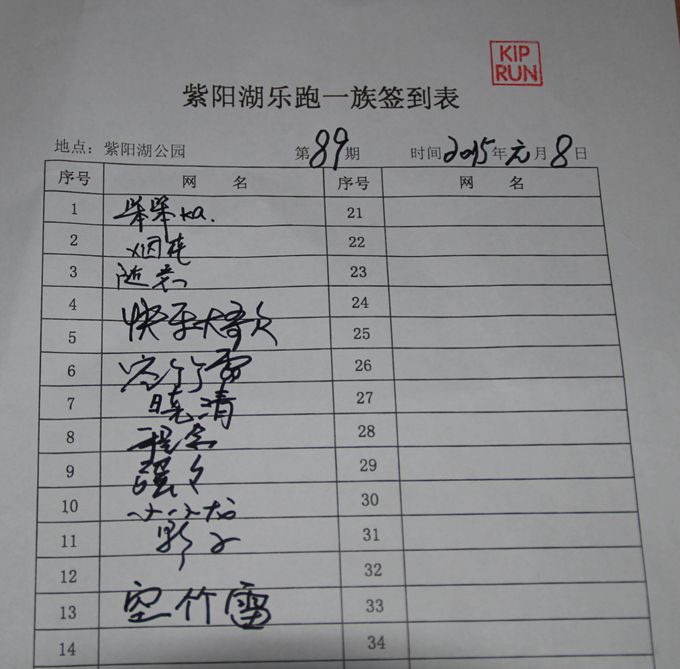 KIP
RUN
紫阳湖乐跑一族签到表
地点：紫阳湖公园 第89期 时间2015年元月8日
序号 网 名 序号 网 名
1 21
2 22
3 随意 23
4 24
5 快乐大哥 25
6 空竹雷 26
7 晓清 27
8 程会 28
9 强多 29
10 小小龙 30
11 影子 31
12 32
13 空竹雷 33
14 34